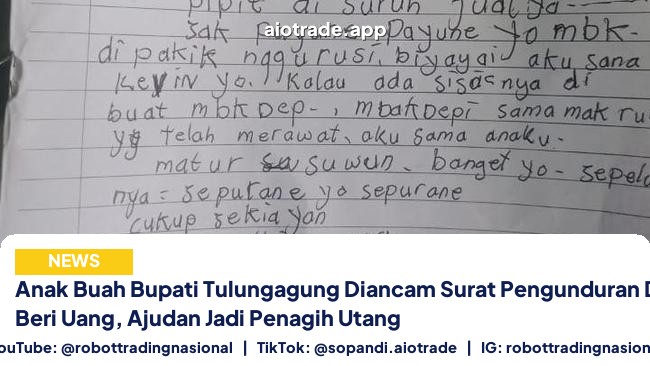 pipit di suruh jual ya-
sak payune yo mbk-
aiotrade.app
di pakik nggurusi, biyayai aku sana
Kevin yo. Kalau ada sisasnya di
buat mbk Dep-, mbak Depi sama mak ru
yg telah merawat, aku sama anaku.
matur suwun. banget yo- sepel
nya = sepurane yo sepurane
cukup sekia yan
NEWS
Anak Buah Bupati Tulungagung Diancam Surat Pengunduran D
Beri Uang, Ajudan Jadi Penagih Utang
ouTube: @robottradingnasional | TikTok: @sopandi.aiotrade | IG: robottradingnasion